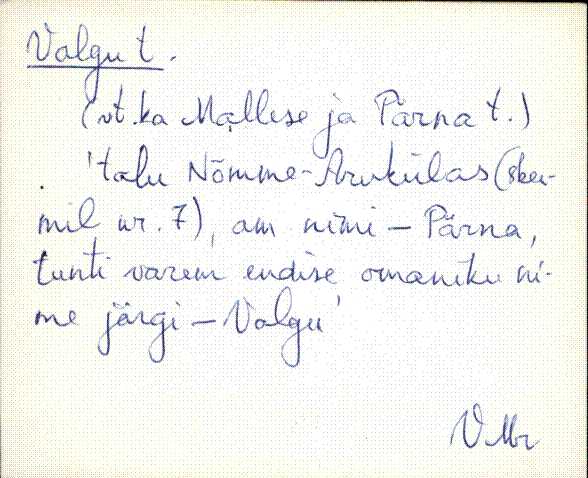 Valgu t.
(vt. ka Mallese ja Pärna t.)
'talu Nõmme-Arukülas (skee-
mil nr. 7), am nimi - Pärna,
tunti varem endise omaniku ni-
me järgi - Valgu'
VMr